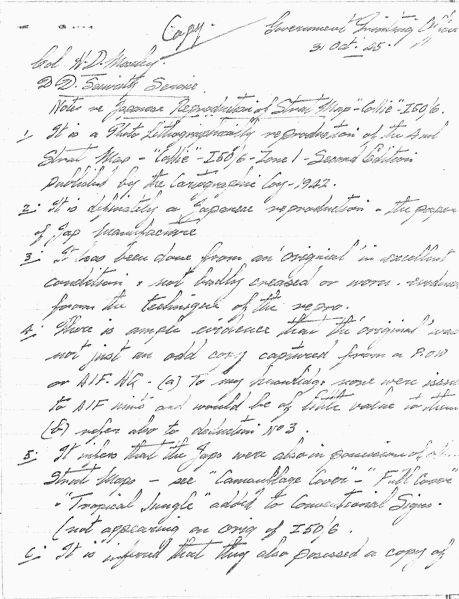 Copy
Government Printing Office
31 Oct. 45.
Col. W.D. Mosely
D D. Security Service.
Notes re Japanese Reproduction of Strat Map - "Collie" - I50/6.
1. It is a Photo Lithographically reproduction of the Aust
Strat Map - "Collie" - I50/6 - Zone 1 - Second Edition
published by the Cartographic Coy - 1942.
2. It is definitely a Japanese reproduction - the paper
of Jap manufacture
3. It has been done from an 'original' in excellent
condition & not badly creased or worn - evidence
from the technique of the repro.
4. There is ample evidence that the 'original' was
not just an odd copy captured from a P.OW
or AIF. NG. - (a) To my knowledge none were issue
to AIF and would be of little value to them
(b) refer also to deduction No 3.
5. It infers that the Japs were also in possession of
Strat Maps - see "Camouflage Cover" - "Full Cover"
- "Tropical Jungle" added to Conventional Signs.
(not appearing on orig of I50/6.
6. It is inferred that they also posessed a copy of